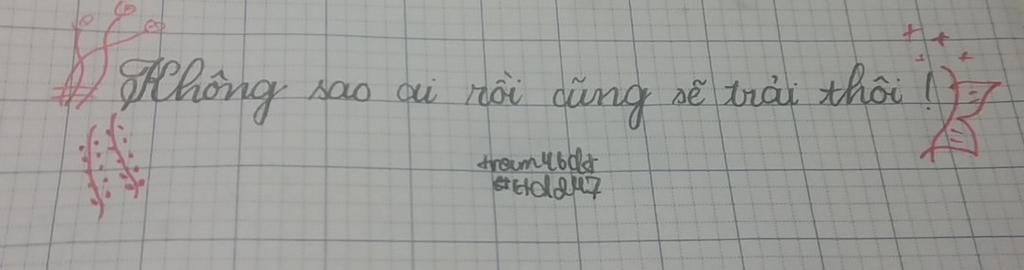 Không sao ai rồi cũng sẽ trải thôi!